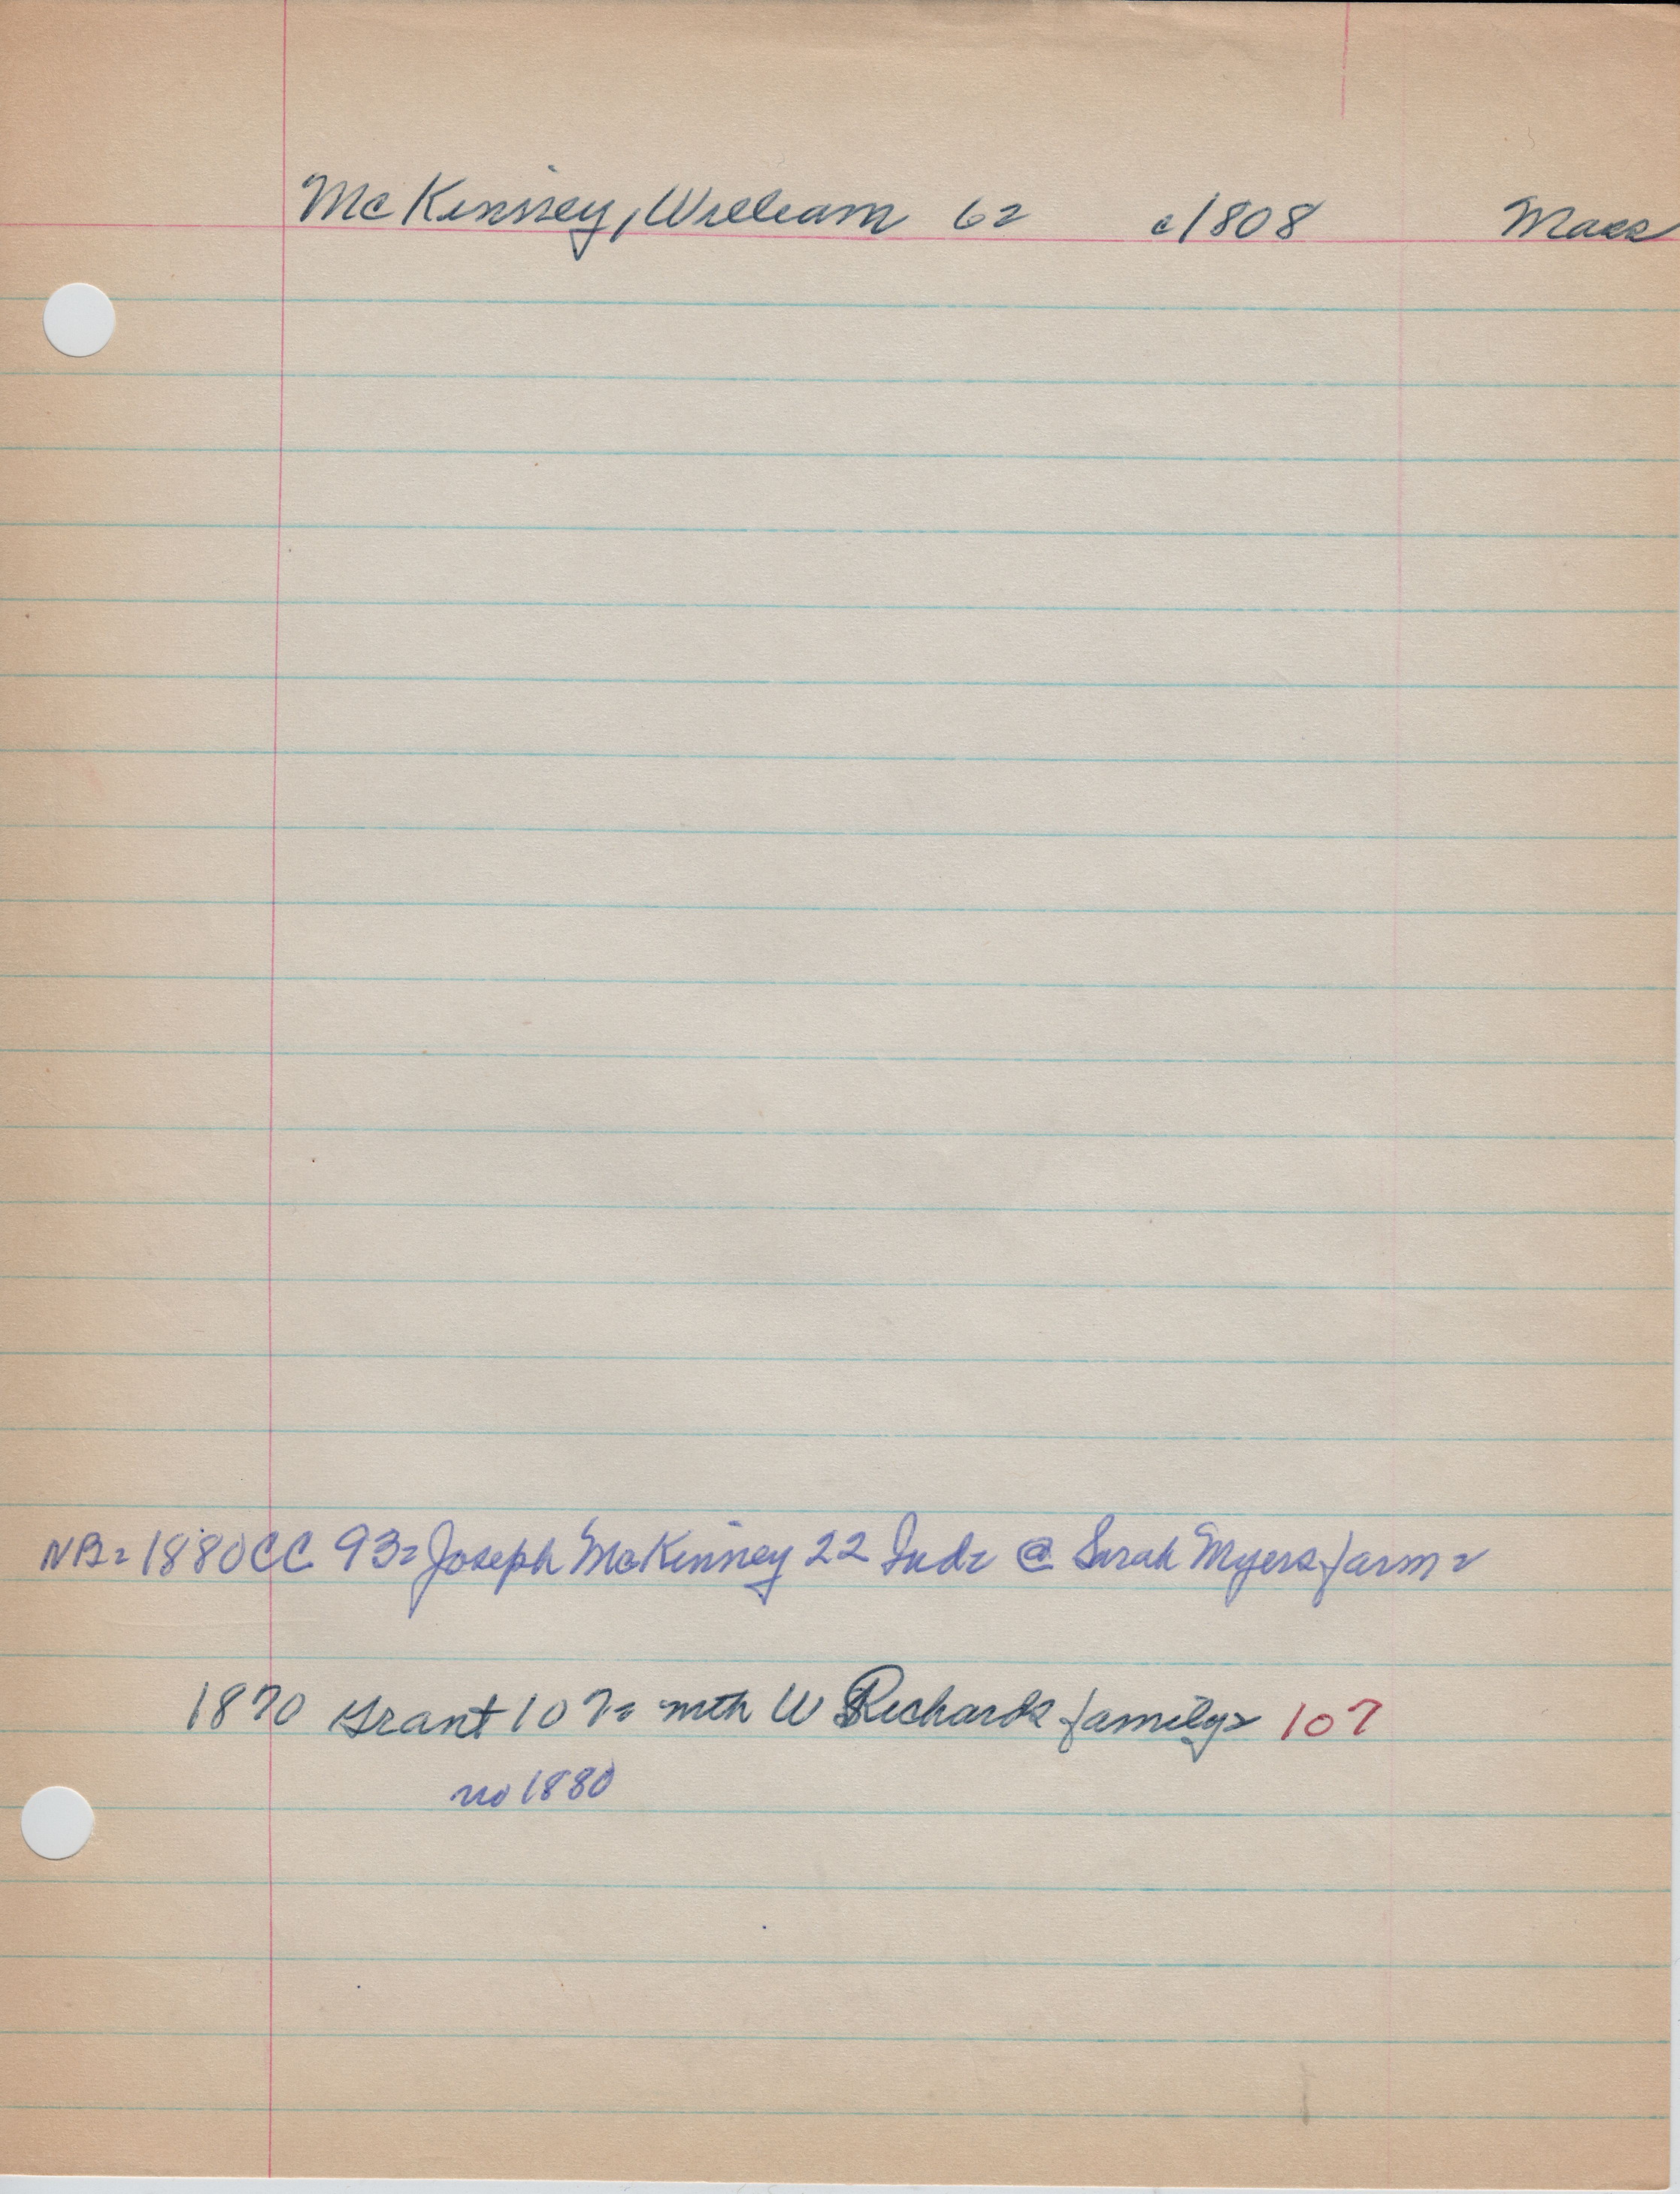 McKinney, William 62 c1808 Mass
NB= 1880CC 93= Joseph McKinney 22 Ind= @ Sarah Myers farm=
1870 Grant 107= with W Richards family= 107
no 1880